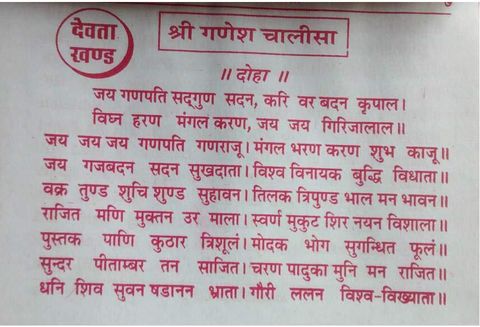 देवता
खण्ड
श्री गणेश चालीसा
॥ दोहा ॥
जय गणपति सद्गुण सदन, करि वर बदन कृपाल।
विघ्न हरण मंगल करण, जय जय गिरिजालाल॥
जय जय जय गणपति गणराजू। मंगल भरण करण शुभ काजू॥
जय गजबदन सदन सुखदाता। विश्व विनायक बुद्धि विधाता॥
वक्र तुण्ड शुचि शुण्ड सुहावन। तिलक त्रिपुण्ड भाल मन भावन॥
राजित मणि मुक्तन उर माला। स्वर्ण मुकुट शिर नयन विशाला॥
पुस्तक पाणि कुठार त्रिशूलं। मोदक भोग सुगन्धित फूलं॥
सुन्दर पीताम्बर तन साजित। चरण पादुका मुनि मन राजित॥
धनि शिव सुवन षडानन भ्राता। गौरी ललन विश्व-विख्याता॥